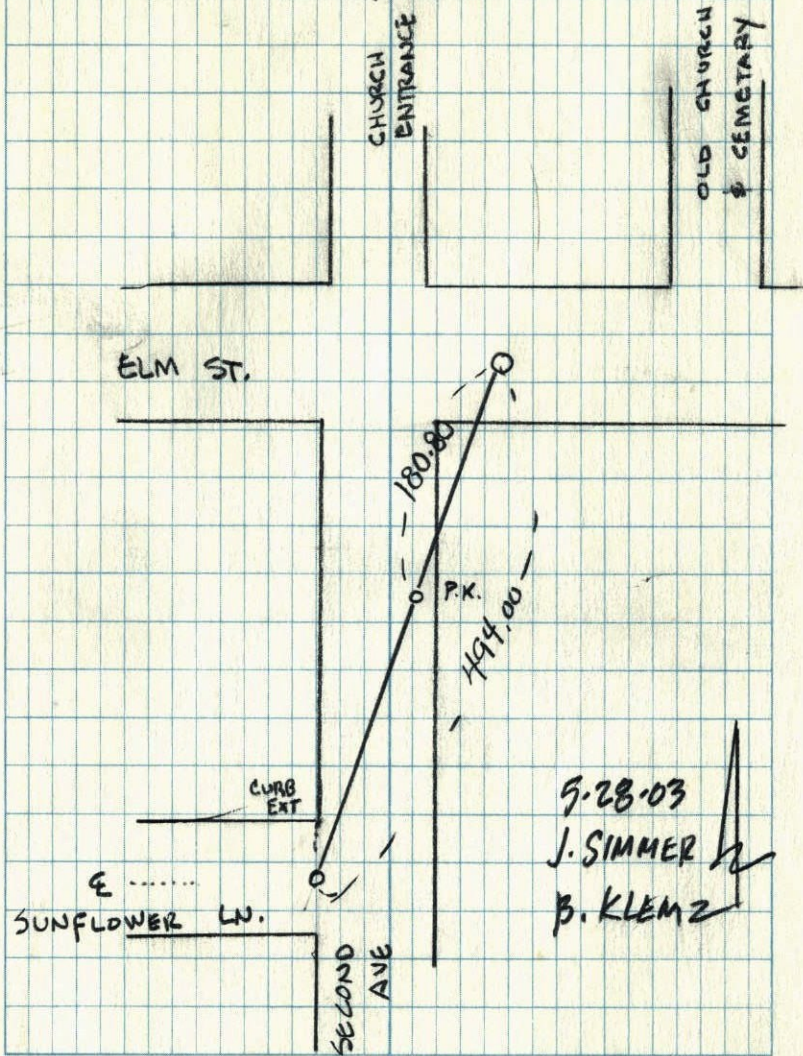 CHURCH
ENTRANCE
OLD CHURCH
& CEMETARY
ELM ST.
180.80
P.K.
494.00
CURB
EXT
℄
SUNFLOWER LN.
SECOND
AVE
5·28·03
J. SIMMER
B. KLEMZ
N